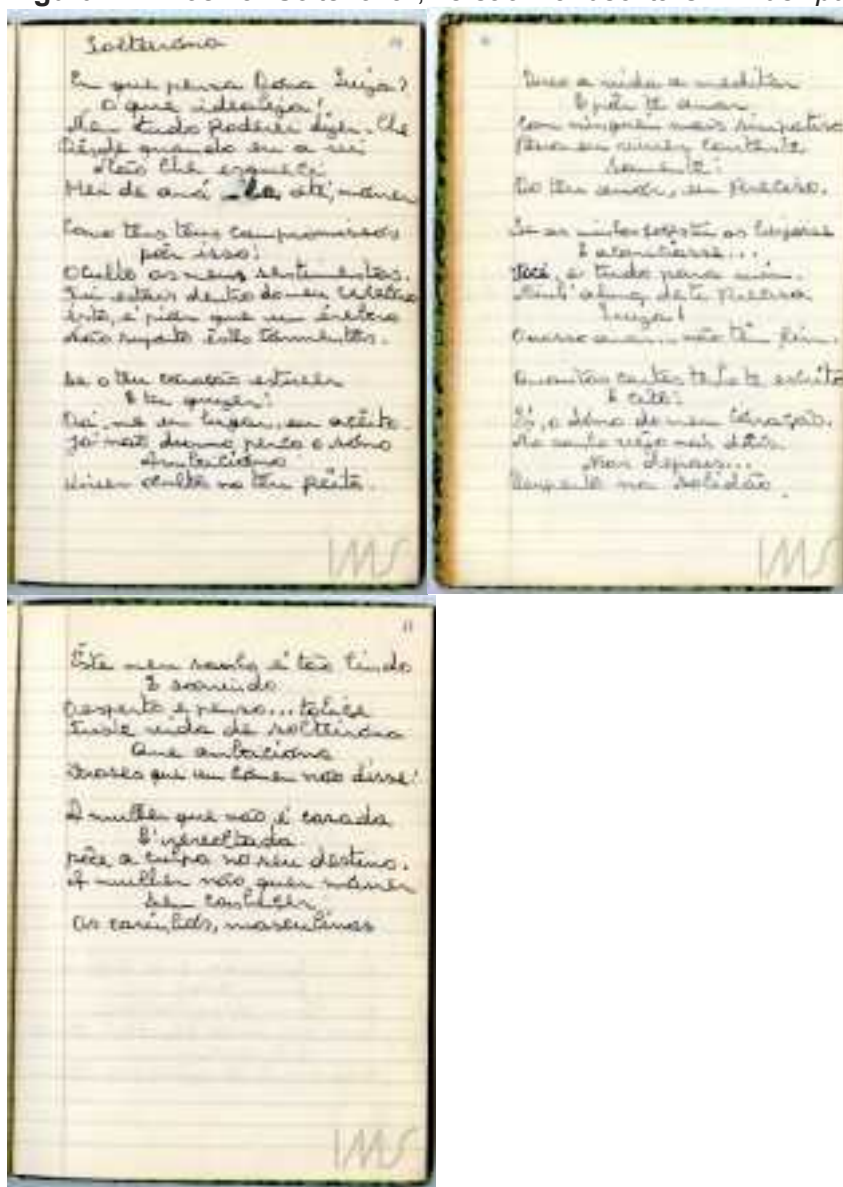 Solteirona
Em que pensa Dona Luiza?
O que idealiza!
Nem tudo poderei dizer-lhe
Desde quando eu a vi
Não lhe esqueci
Hei de amá-la, até, morrer
Como tens teus compromissos
por isso!
Oculto os meus sentimentos.
dentro do meu cerebro
isto, é pior que um
Não suporto estes tormentos.
Se o teu coração estiver
E teu quizer!
Dai-me um lugar, eu aceito.
Já não durmo perco o sono
Ambaciono
Viver oculto no teu peito.
a vida a meditar
E pôr te amar
Com ninguem mais simpatiso
contente
Somente!
Do teu amor, eu preciso.
E acontecesse...
Você, é tudo para mim.
Minh'alma de te precisa
Luiza!
não têm fim.
Quantas cartas tenho te escrito
E cito:
És, o dono do meu coração.
No sonho vejo nós dois
Mas depois...
Desperto na solidão
11
Êste meu sonho é tão lindo
E sorrindo
Desperto e penso... tolice
Triste vida de solteirona
Que ambaciona
Frases que um homem não disse!
A mulher que não é casada
E' revoltada
põe a culpa no seu destino.
A mulher não quer morrer
Sem conhecer
Os carinhos, masculinos
IMS
IMS
IMS